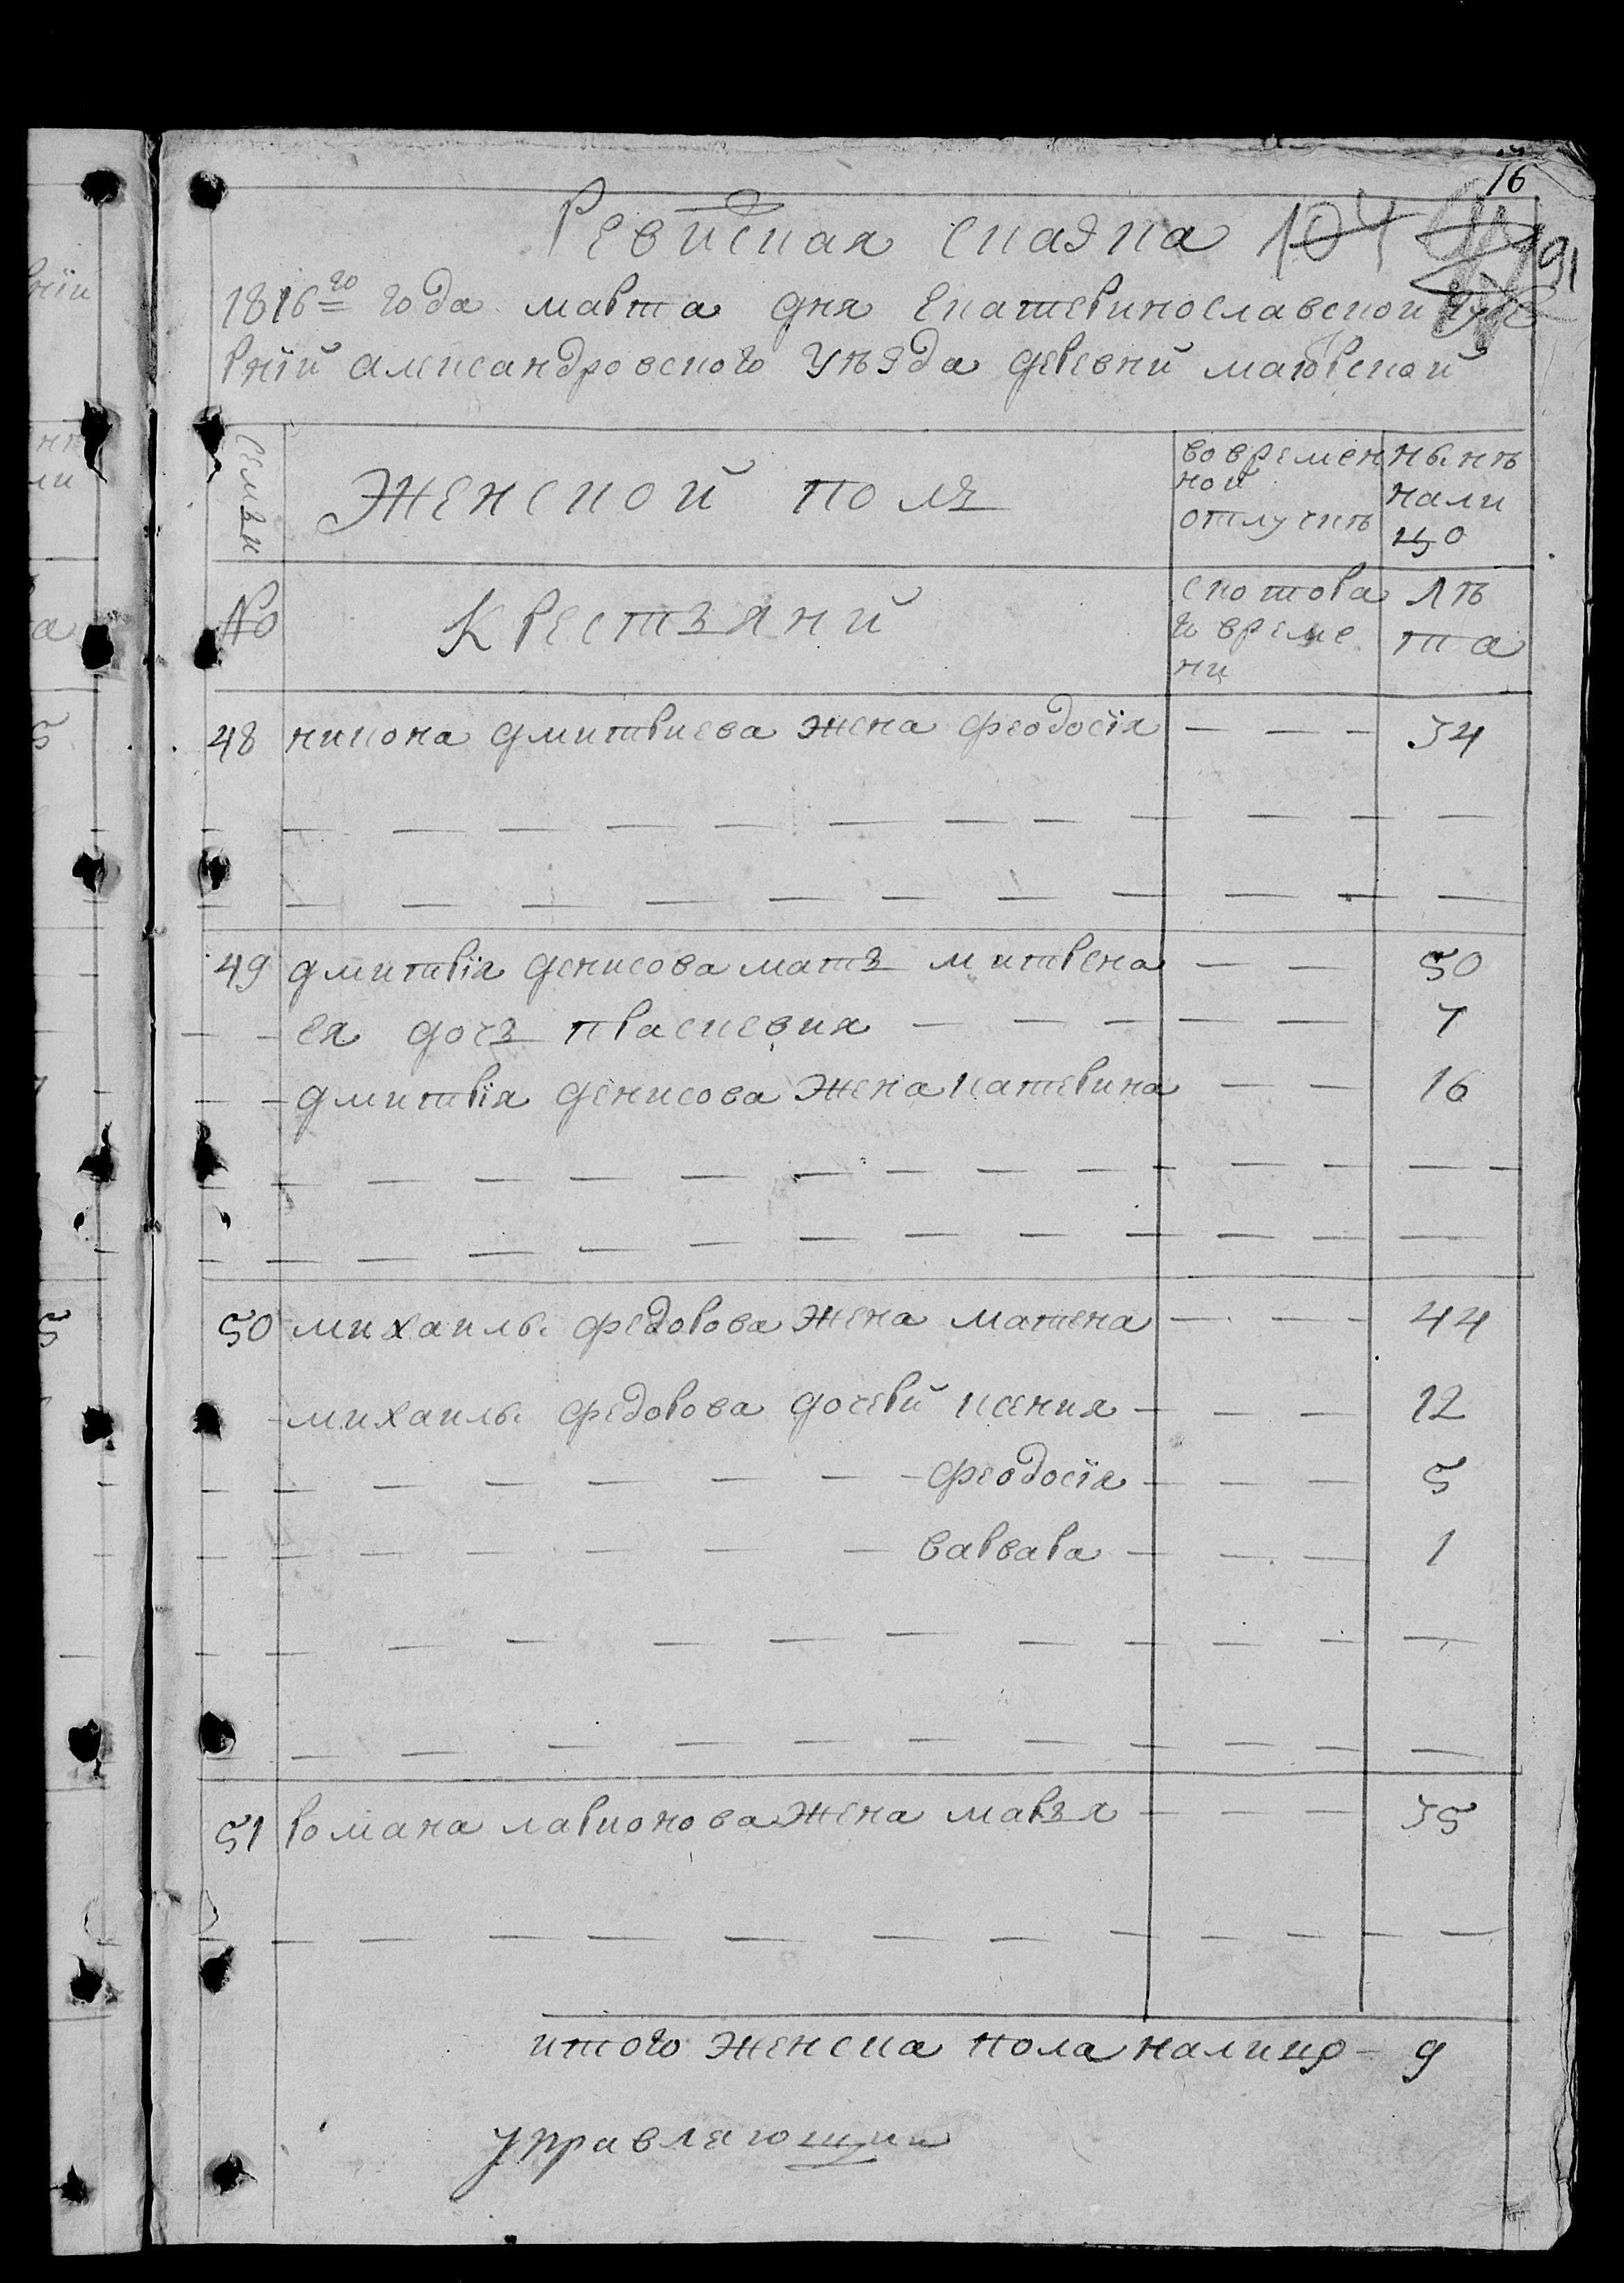 16
Ревиская скаzка 104 91
1816го года марта дня Екатеринославской губе
рнїи александровского уѣзда деревни маiорской
Семьи
Женской полъ
во времен
ной
отлучкѣ
нынѣ
нали
цо
№
Крестьяни
с котора
го време
ни
лѣ
та
48 никона дмитриева жена феодосїя — — — 34
49 дмитрїя денисова мать митрена — — 50
— — ея дочь праскевия — — — — — 7
— — дмитрїя денисова жена катерина — — 16
50 михаилы федорова жена матена — — — 44
михаилы федорова дочери ксения — — — 12
феодосїя — — — 5
варвара — — — 1
51 романа ларионова жена марья — — — 35
итого женска пола налицо — 9
управляющии